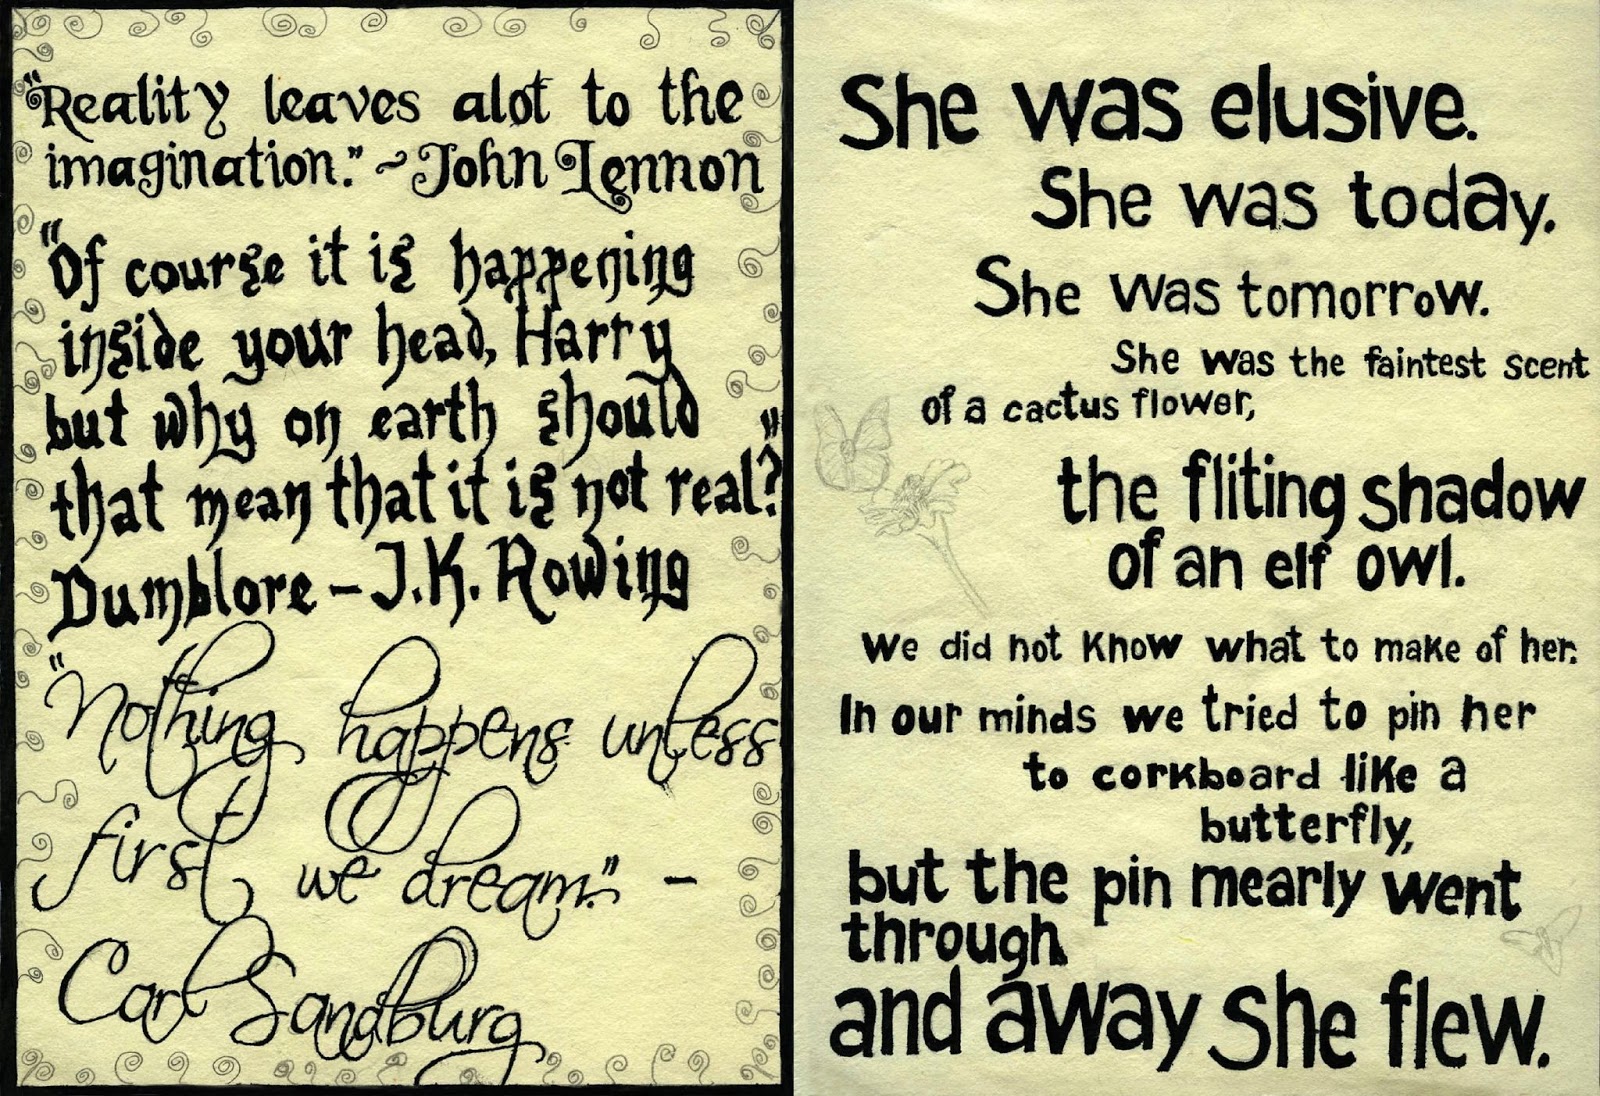 “Reality leaves alot to the
imagination.” ~ John Lennon
“Of course it is happening
inside your head, Harry
but why on earth should
that mean that it is not real?”
Dumblore – J.K. Rowing
“Nothing happens unless
first we dream.” –
Carl Sandburg
She was elusive.
She was today.
She was tomorrow.
She was the faintest scent
of a cactus flower,
the fliting shadow
of an elf owl.
We did not know what to make of her.
In our minds we tried to pin her
to corkboard like a
butterfly,
but the pin mearly went
through
and away she flew.